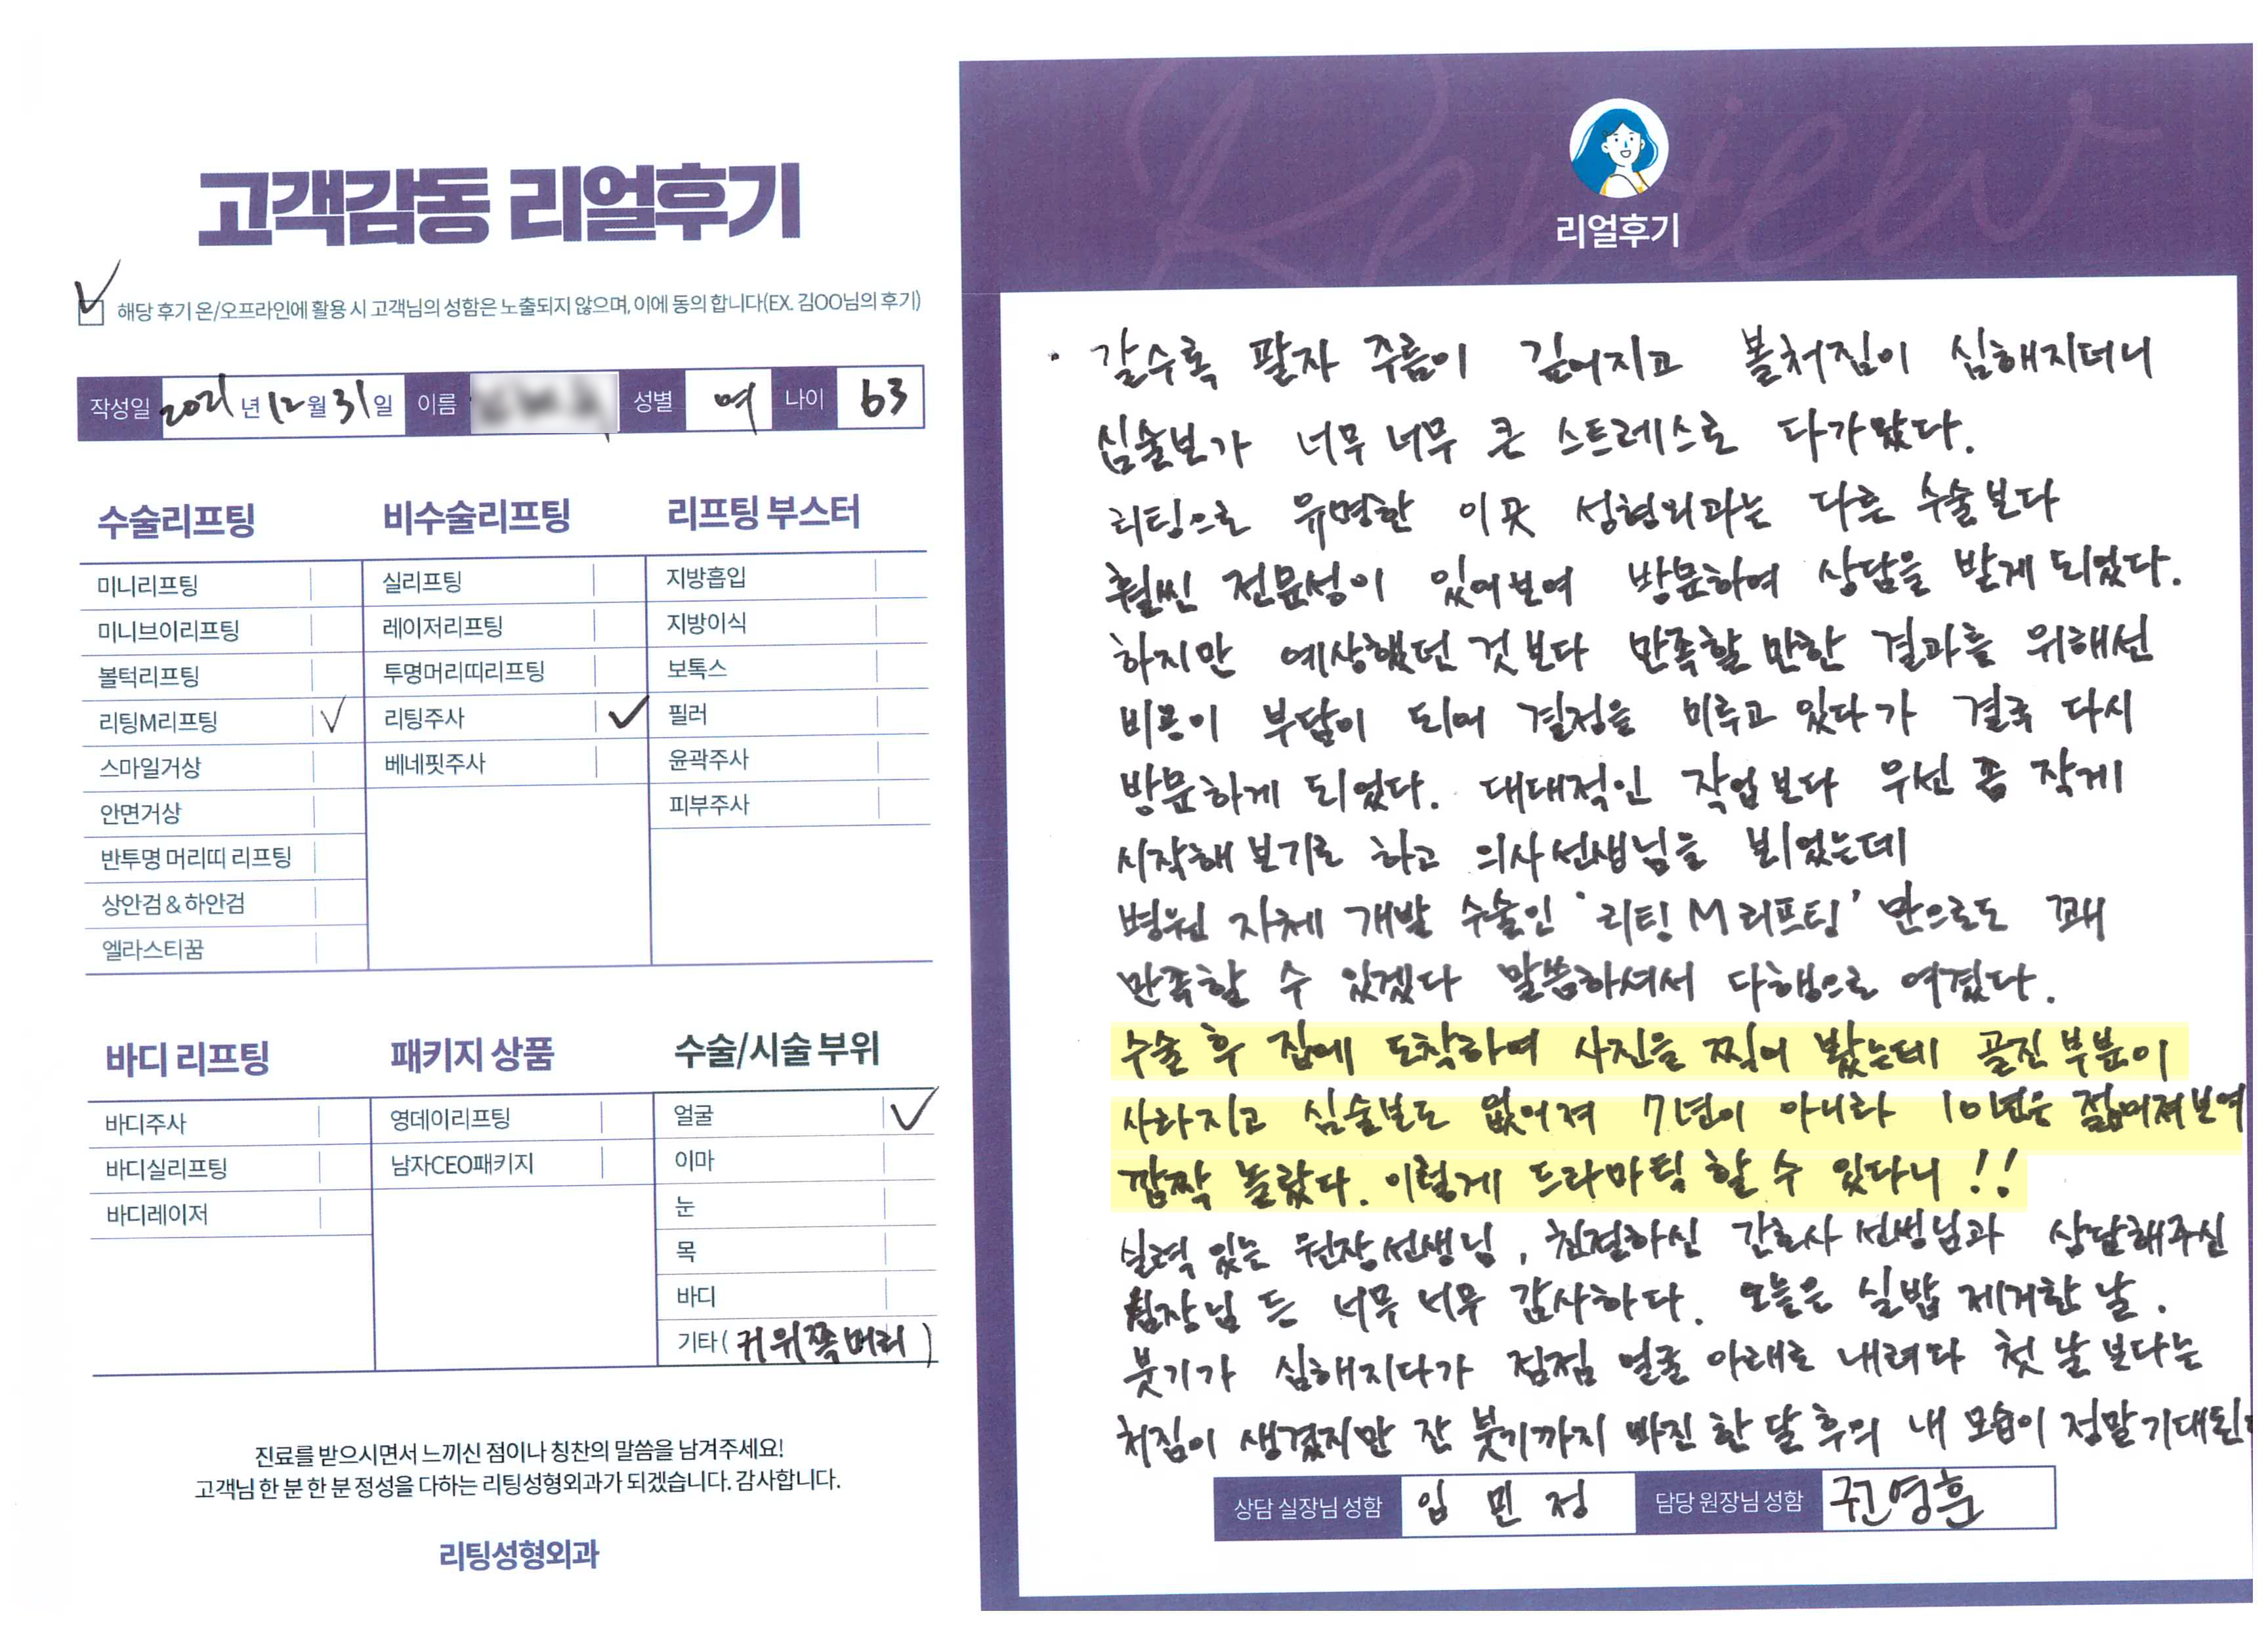 고객감동 리얼후기
해당 후기 온/오프라인에 활용 시 고객님의 성함은 노출되지 않으며, 이에 동의 합니다(EX. 김OO님의 후기)
작성일 2021년 12월 31일 이름 성별 여 나이 63
수술리프팅
미니리프팅
미니브이리프팅
볼턱리프팅
리팅M리프팅 ✓
스마일거상
안면거상
반투명 머리띠 리프팅
상안검&하안검
엘라스티꿈
비수술리프팅
실리프팅
레이저리프팅
투명머리띠리프팅
리팅주사 ✓
베네핏주사
리프팅 부스터
지방흡입
지방이식
보톡스
필러
윤곽주사
피부주사
바디 리프팅
바디주사
바디실리프팅
바디레이저
패키지 상품
영데이리프팅
남자CEO패키지
수술/시술 부위
얼굴 ✓
이마
눈
목
바디
기타( 귀 위쪽 머리 )
진료를 받으시면서 느끼신 점이나 칭찬의 말씀을 남겨주세요!
고객님 한 분 한 분 정성을 다하는 리팅성형외과가 되겠습니다. 감사합니다.
리팅성형외과
Review
리얼후기
· 갈수록 팔자 주름이 깊어지고 볼처짐이 심해지더니
심술보가 너무 너무 큰 스트레스로 다가왔다.
리팅으로 유명한 이곳 성형외과는 다른 수술보다
훨씬 전문성이 있어보여 방문하여 상담을 받게 되었다.
하지만 예상했던 것보다 만족할 만한 결과를 위해선
비용이 부담이 되어 결정을 미루고 있다가 결국 다시
방문하게 되었다. 대대적인 작업보다 우선 좀 작게
시작해 보기로 하고 의사선생님을 뵈었는데
병원 자체 개발 수술인 '리팅M리프팅' 만으로도 꽤
만족할 수 있겠다 말씀하셔서 다행으로 여겼다.
수술 후 집에 도착하여 사진을 찍어 봤는데 골진 부분이
사라지고 심술보도 없어져 7년이 아니라 10년은 젊어져보여
깜짝 놀랐다. 이렇게 드라마틱 할 수 있다니 !!
실력 있는 원장선생님, 친절하신 간호사 선생님과 상담해주신
실장님 든 너무 너무 감사하다. 오늘은 실밥 제거한 날.
붓기가 심해지다가 점점 얼굴 아래로 내려다 첫 날 보다는
처짐이 생겼지만 잔 붓기까지 빠진 한 달 후의 내 모습이 정말 기대된
상담 실장님 성함 임 민 정 담당 원장님 성함 권영훈